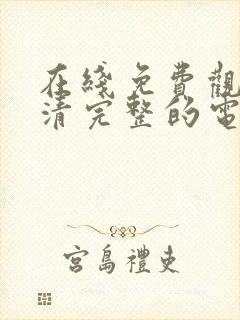 在綫免費觀
清完整的電
宮島禮吏